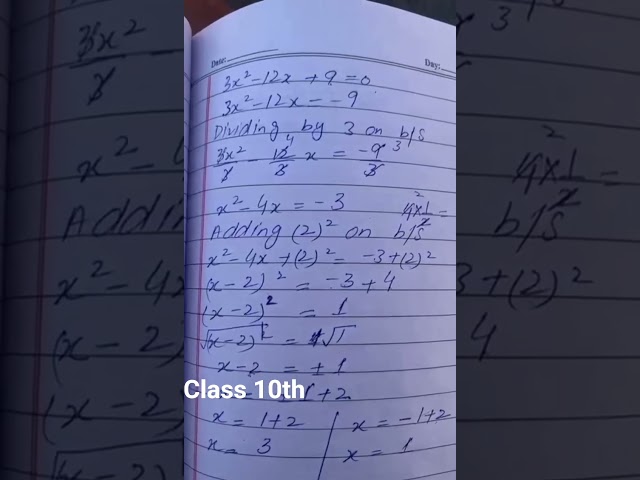 Date: Day:
3x² - 12x + 9 = 0
3x² - 12x = -9
Dividing by 3 on b/s
3x²/3 - 12/3 x = -9/3
4 3
x² - 4x = -3 4 × 1/2 =
2
Adding (2)² on b/s
x² - 4x + (2)² = -3 + (2)²
(x - 2)² = -3 + 4
(x - 2)² = 1
√(x - 2)² = ±√1
x - 2 = ± 1
Class 10th 1 + 2
x = 1 + 2 x = -1 + 2
x = 3 x = 1